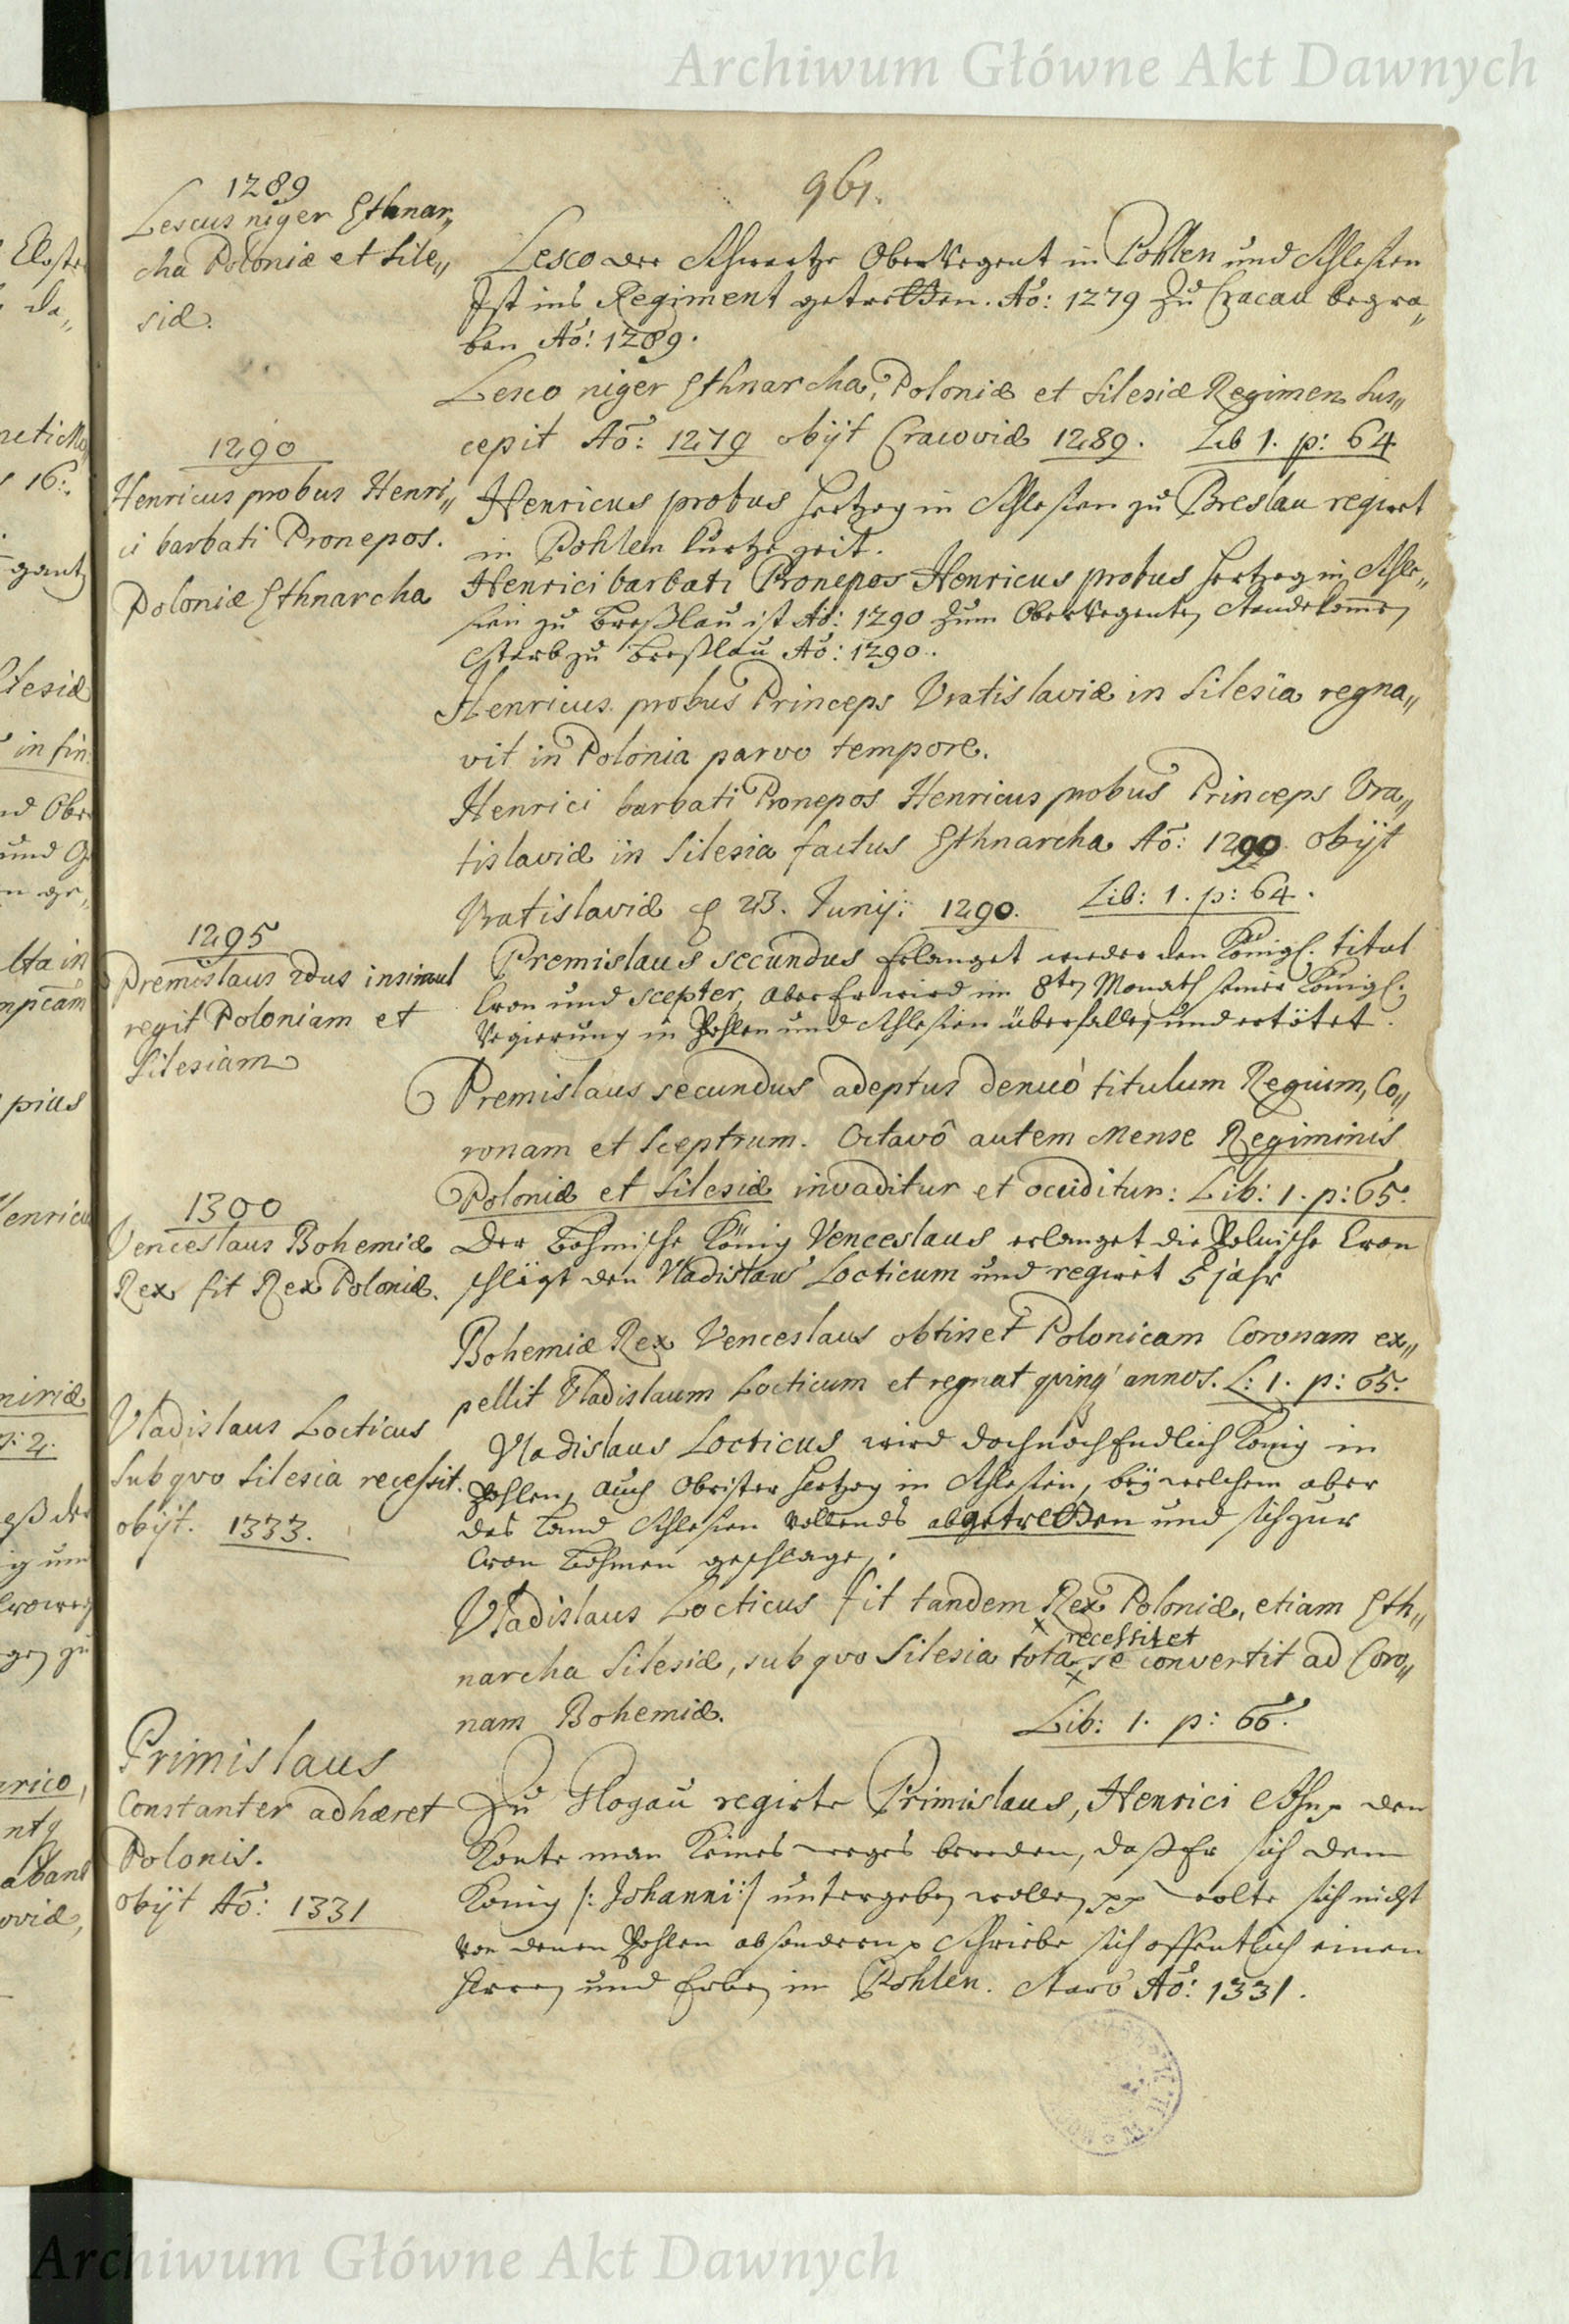 Archiwum Główne Akt Dawnych
961.
1289
Lescus niger Ethnar„
cha Poloniæ et Sile„
siæ.
Lesco der Schwartze OberRegent in Pohlen und Schlesien
Ist ins Regiment getretten. Aõ: 1279 Zu Cracau begra„
ben Aõ: 1289.
Lesco niger Ethnarcha, Poloniæ et Silesiæ Regimen sus„
cepit Aõ: 1279 obijt Cracoviæ 1289. Lib 1. p: 64
1290
Henricus probus Henri„
ci barbati Pronepos.
Poloniæ Ethnarcha
Henricus probus Hertzog in Schlesien zu Breslau regiret
in Pohlen kurtze zeit.
Henrici barbati Pronepos Henricus probus Hertzog in Schle„
sien zu Breßlau ist Aõ: 1290 Zum OberRegenten Stande komen
Starb zu Breßlau Aõ: 1290.
Henricus probus Princeps Vratislaviæ in Silesia regna„
vit in Polonia parvo tempore.
Henrici barbati Pronepos Henricus probus Princeps Vra„
tislaviæ in Silesia factus Ethnarcha Aõ: 1290 obijt
Vratislaviæ 23. Junij: 1290. Lib: 1. p: 64.
1295
Premislaus 2dus insimul
regit Poloniam et
Silesiam
Premislaus secundus Erlanget wieder den Königl. titul
Cron und scepter, Aber Er wird im 8ten Monath seiner Königl:
Regierung in Pohlen und Schlesien überfallen und ertötet.
Premislaus secundus adeptus denuò titulum Regium, Co„
ronam et Sceptrum. Octavô autem Mense Regiminis
Poloniæ et Silesiæ invaditur et occiditur: Lib: 1. p: 65.
1300
Venceslaus Bohemiæ
Rex fit Rex Poloniæ.
Der Böhmische König Venceslaus erlanget die Polnische Cron
schlägt den Vladislaus Locticum und regiret 5 jahr
Bohemiæ Rex Venceslaus obtinet Polonicam Coronam ex„
pellit Vladislaum Locticum et regnat qvinq' annos. L: 1. p: 65.
Vladislaus Locticus
sub qvo Silesia recessit.
obijt. 1333.
Vladislaus Locticus wird doch noch Endlich König in
Pohlen, auch Obrister Hertzog in Schlesien, beÿ welchem aber
das Land Schlesien Vollends abgetretten und sich zur
Cron Böhmen geschlagen.
Vladislaus Locticus fit tandem Rex Poloniæ, etiam Eth„
recessit et
narcha Silesiæ, sub qvo Silesia tota se convertit ad Coro„
nam Bohemiæ. Lib: 1. p: 66.
Primislaus
Constanter adhæret
Polonis.
obijt Aõ: 1331
Zu Glogau regirte Primislaus, Henrici Sohn den
Konte man Keines weges bereden, daß Er sich dem
König /: Johanni :/ untergeben wollen wolte sich nicht
Von denen Pohlen absondern Schriebe sich offentlich einen
Herren und Erben in Pohlen. Starb Aõ: 1331.
Archiwum Główne Akt Dawnych